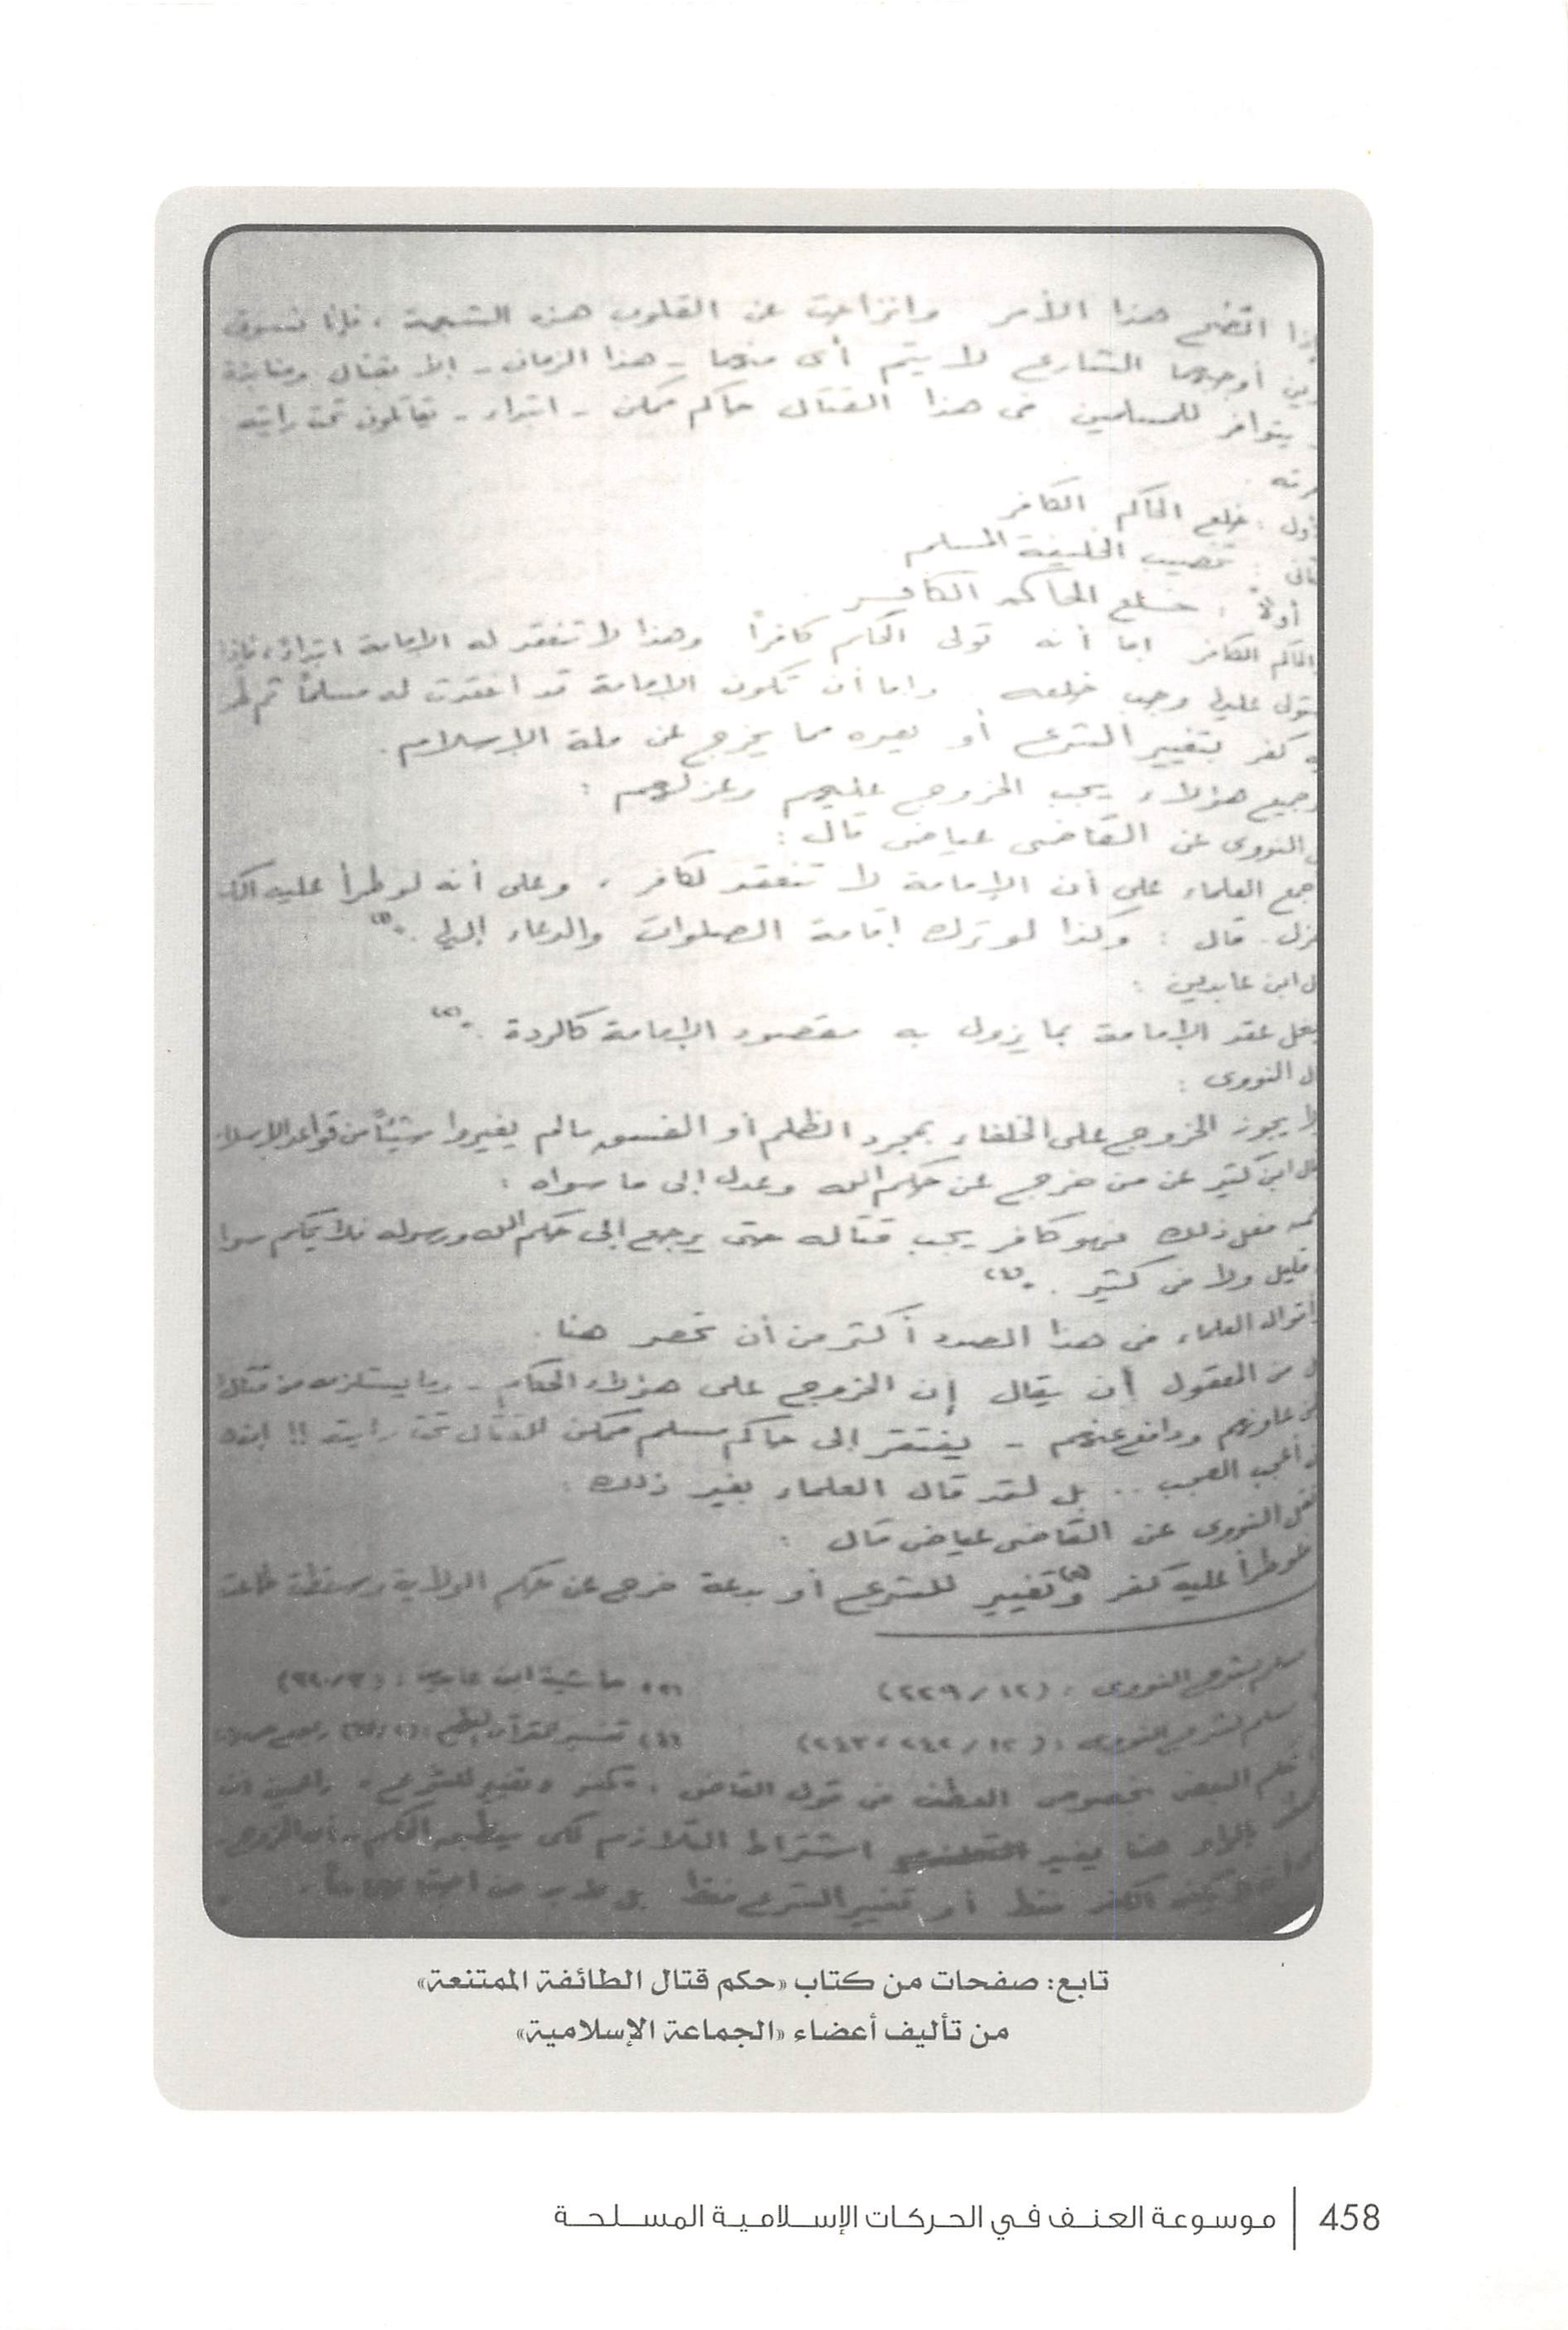 اتضح هذا الأمر وانزاحت عن القلوب هذه الشبهة ، فإنا نسوق
أوجبهما الشارع لا يتم أى منهما - هذا الزمان - إلا بقتال ومنابذة
يتوافر للمسلمين فى هذا القتال حاكم ممكن - ابتداء - يقاتلون تحت رايته
خلع الحاكم الكافر
تنصيب الخليفة المسلم
أولاً : خلع الحاكم الكافر
الحاكم الكافر إما أنه تولى الحكم كافراً وهذا لا تنعقد له الإمامة ابتداءً ، فإذا
وجب خلعه . وإما أن تكون الإمامة قد انعقدت له مسلماً ثم طرأ
كفر بتغيير الشرع أو بغيره مما يخرج عن ملة الإسلام .
وجميع هؤلاء يجب الخروج عليهم وعزلهم :
النووى عن القاضى عياض قال :
جمع العلماء على أن الإمامة لا تنعقد لكافر ، وعلى أنه لو طرأ عليه
قال : وكذا لو ترك إقامة الصلوات والدعاء إليها .
ابن عابدين :
عقد الإمامة بما يزول به مقصود الإمامة كالردة .
النووى :
لا يجوز الخروج على الخلفاء بمجرد الظلم أو الفسق مالم يغيروا شيئاً من قواعد الإسلام
ابن كثير عن من خرج عن حكم الله وعدل إلى ما سواه :
فعل ذلك فهو كافر يجب قتاله حتى يرجع إلى حكم الله ورسوله فلا يحكم سوا
قليل ولا فى كثير . (٤)
أقوال العلماء فى هذا الصدد أكثر من أن تحصر هنا .
من المعقول أن يقال إن الخروج على هؤلاء الحكام - وما يستلزمه من قتال
عاونهم ودافع عنهم - يفتقر إلى حاكم مسلم ممكن للقتال تحت رايته !!
أعجب العجب .. بل لقد قال العلماء بغير ذلك :
النووى عن القاضى عياض قال :
طرأ عليه كفر وتغيير للشرع أو بدعة خرج عن حكم الولاية وسقطت طاعته
مسلم بشرح النووى : (١٢/٢٢٩)
حاشية ابن عابدين :
مسلم بشرح النووى : (١٢/٢٤٢، ٢٤٣)
(٤) تفسير القرآن العظيم :
البعض بخصوص العطف فى قول القاضى : كفر وتغيير للشرع
هنا يفيد اشتراط التلازم لكى
الكفر فقط أو تغيير الشرع فقط بل لابد من
تابع: صفحات من كتاب «حكم قتال الطائفة الممتنعة»
من تأليف أعضاء «الجماعة الإسلامية»
458 | موسوعة العنف في الحركات الإسلامية المسلحة